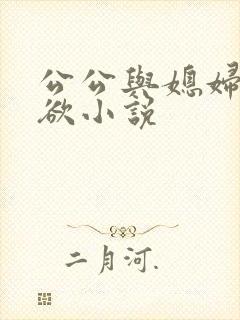 公公與媳婦
欲小說
二月河.